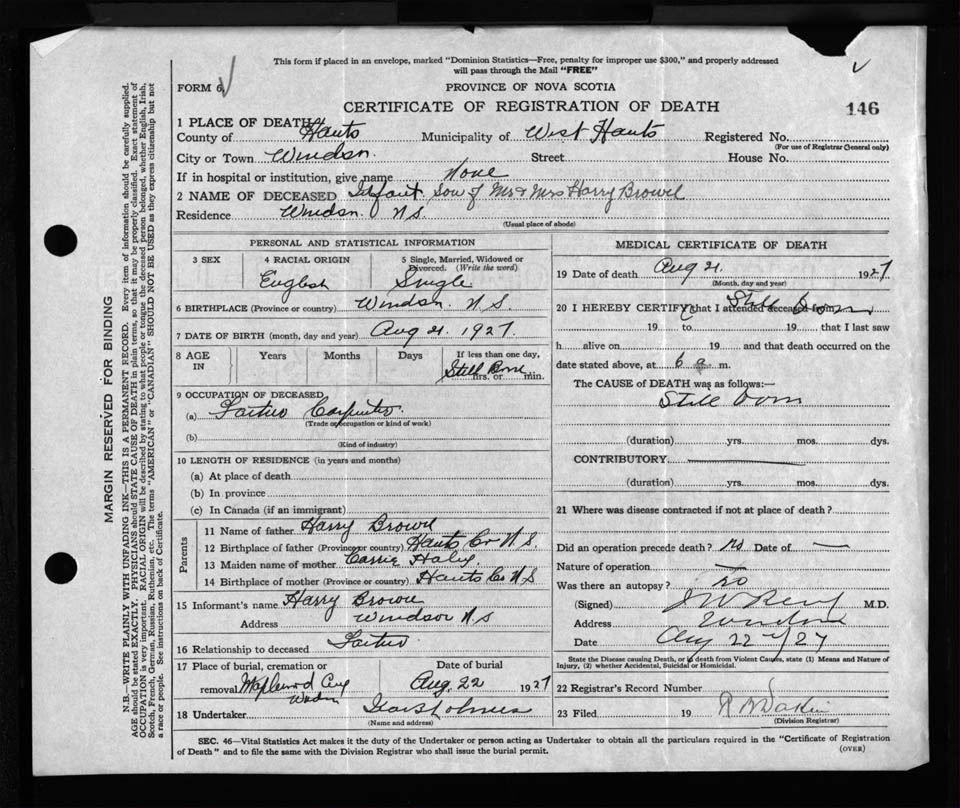 This form if placed in an envelope, marked "Dominion Statistics—Free, penalty for improper use $300," and properly addressed
will pass through the Mail "FREE"
FORM 6
PROVINCE OF NOVA SCOTIA
CERTIFICATE OF REGISTRATION OF DEATH
146
1 PLACE OF DEATH
County of Hants Municipality of West Hants Registered No.
(For use of Registrar General only)
City or Town Windsor. Street House No.
If in hospital or institution, give name None
2 NAME OF DECEASED Infant Son of Mr & Mrs Harry Browne
Residence Windsor. N S.
(Usual place of abode)
PERSONAL AND STATISTICAL INFORMATION
3 SEX 4 RACIAL ORIGIN 5 Single, Married, Widowed or
Divorced. (Write the word)
English Single
6 BIRTHPLACE (Province or country) Windsor. N S.
7 DATE OF BIRTH (month, day and year) Aug 21. 1927.
8 AGE IN Years Months Days If less than one day,
Still Born hrs. or min.
9 OCCUPATION OF DECEASED
(a) Carpenter.
(Trade or occupation or kind of work)
(b)
(Kind of industry)
10 LENGTH OF RESIDENCE (in years and months)
(a) At place of death
(b) In province
(c) In Canada (if an immigrant)
Parents
11 Name of father Harry Browne
12 Birthplace of father (Province or country) Hants Co N.S.
13 Maiden name of mother Carrie Haley
14 Birthplace of mother (Province or country) Hants Co N S
15 Informant's name Harry Browne
Address Windsor N S
16 Relationship to deceased
17 Place of burial, cremation or Date of burial
removal Maplewood Aug. 22 1927
18 Undertaker
(Name and address)
MEDICAL CERTIFICATE OF DEATH
19 Date of death Aug 21. 1927
(Month, day and year)
20 I HEREBY CERTIFY that I attended deceased from Still born
19 to 19 that I last saw
h alive on 19 and that death occurred on the
date stated above, at 6 a m.
The CAUSE OF DEATH was as follows:—
Still born
(duration) yrs. mos. dys.
CONTRIBUTORY
(duration) yrs. mos. dys.
21 Where was disease contracted if not at place of death?
Did an operation precede death? No Date of —
Nature of operation —
Was there an autopsy? no
(Signed) M.D.
Address Windsor
Date Aug 22nd/27
State the Disease causing Death, or in death from Violent Causes, state (1) Means and Nature of
Injury, (2) whether Accidental, Suicidal or Homicidal.
22 Registrar's Record Number
23 Filed 19
(Division Registrar)
SEC. 46—Vital Statistics Act makes it the duty of the Undertaker or person acting as Undertaker to obtain all the particulars required in the "Certificate of Registration
of Death" and to file the same with the Division Registrar who shall issue the burial permit.
(OVER)
MARGIN RESERVED FOR BINDING
N.B.—WRITE PLAINLY WITH UNFADING INK—THIS IS A PERMANENT RECORD. Every item of information should be carefully supplied.
AGE should be stated EXACTLY. PHYSICIANS should STATE CAUSE OF DEATH in plain terms, so that it may be properly classified. Exact statement of
OCCUPATION is very important. RACIAL ORIGIN will be described by stating to what people or tongue the deceased person belonged, whether English, Irish,
Scotch, French, German, Russian, Ruthenian, etc. The terms "AMERICAN" or "CANADIAN" SHOULD NOT BE USED as they express citizenship but not
a race or people. See instructions on back of Certificate.